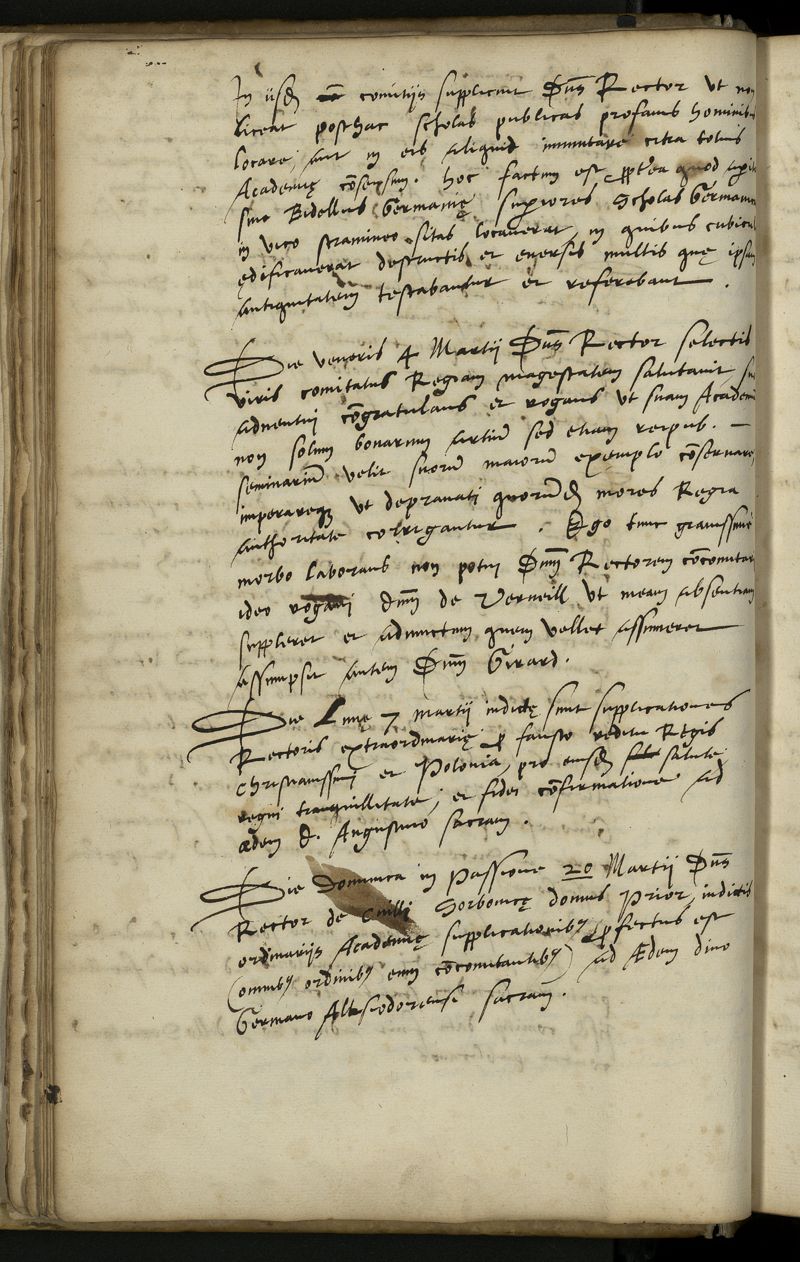 In iisdē comitijs supplicuit Dūs Rector ut non
liceat posthac scholas publicas profanis hominibus
locare, aut in eis aliquid immutare citra totius
Academię cōsensum. hoc factum est ꝓpterea quod
Bidellus Germanię superiores scholas Germanię
in vico stramineo sitas locaverat, in quibus cubicul
ędificaverat destructis et eversis multis quę ipsam
antiquitatem testabantur et referebant.
Die veneris 4 Martij Dūs Rector selectis
viris comitatus Regiam magestatem salutavit
adventui cōgratulans et rogans ut suam Academi
non solum bonarum artiū sed etiam reipub. —
seminariū velit suorū maiorū exemplo cōservare,
imperareqȝ ut depravati quorūdā mores Regia
authoritate corrigantur. Ego tunc gravissimè
morbo laborans non potui Dūm Rectorem cōcomitari
ideo rogavi dūm de Verneill ut meam absentiam
suppleret et adiunctum quem vellet assumeret
assumpsit autem Dūm Girard.
Die Lunę 7 martij indictę sunt supplicationes
Rectoris extraordinarię ꝓ fausto reditu Regis
christianissimi et Polonia, pro eiusdē salute
regni tranquillitate, et fidei cōfirmatione ad
ædem d. Augustino sacram.
Die Dominica in passione 20 Martij Dūs
Rector de Cuilli Sorbonicę domus Prior, indictis
ordinarijs Academię supplicationibȝ ꝓfectus est
(omnibȝ ordinibȝ eum cōcomitantibȝ) ad Ædem divo
Germano Altisiodorensi sacram.